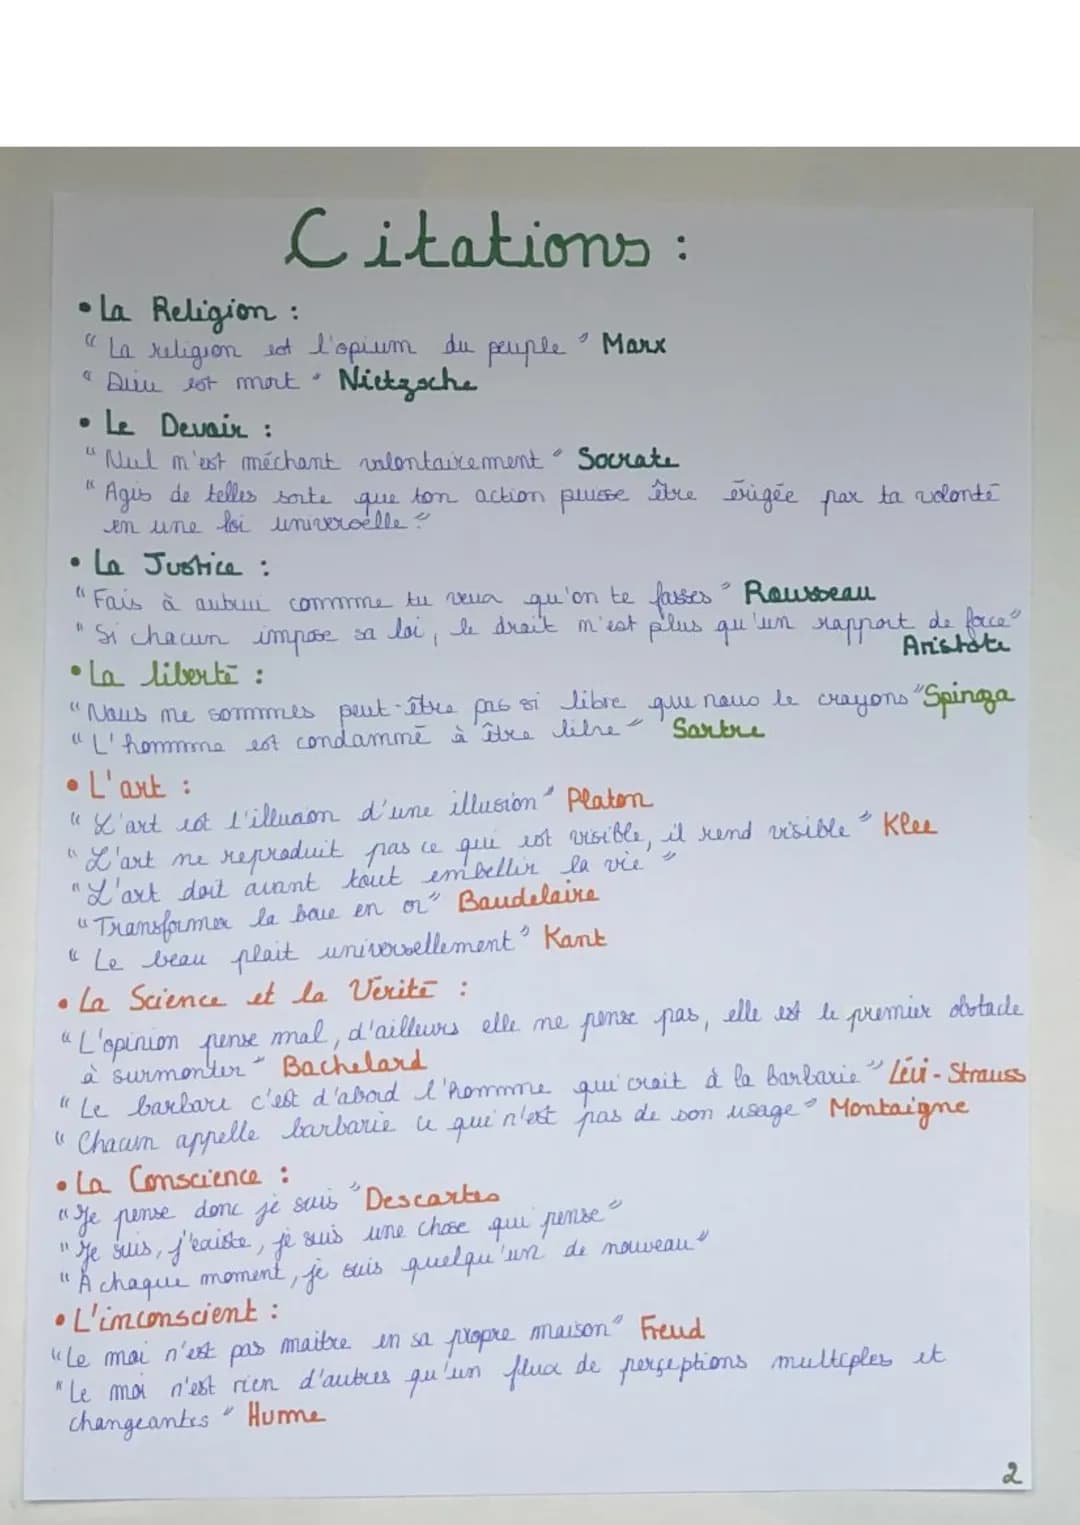 Citations :
• La Religion :
" La religion est l'opium du peuple " Marx
" Dieu est mort " Nietzsche
• Le Devoir :
" Nul n'est méchant volontairement " Socrate
" Agis de telles sorte que ton action puisse être érigée par ta volonté
en une loi universelle "
• La Justice :
" Fais à autrui commme tu veux qu'on te fasses " Rousseau
" Si chacun impose sa loi, le droit n'est plus qu'un rapport de force "
Aristote
• La liberté :
" Nous ne sommmes peut-être pas si libre que nous le crayons " Spinoza
" L'hommme est condamné à être libre " Sartre
• L'art :
" L'art est l'illusion d'une illusion " Platon
" L'art ne reproduit pas ce qui est visible, il rend visible " Klee
" L'art doit avant tout embellir la vie "
" Transformer la boue en or " Baudelaire
" Le beau plait universellement " Kant
• La Science et la Vérité :
" L'opinion pense mal, d'ailleurs elle ne pense pas, elle est le premier obstacle
à surmonter " Bachelard
" Le barbare c'est d'abord l'hommme qui croit à la barbarie " Lévi-Strauss
" Chacun appelle barbarie ce qui n'est pas de son usage " Montaigne
• La Conscience :
" Je pense donc je suis " Descartes
" Je suis, j'existe, je suis une chose qui pense "
" À chaque moment, je suis quelqu'un de nouveau "
• L'inconscient :
" Le moi n'est pas maitre en sa propre maison " Freud
" Le moi n'est rien d'autres qu'un flux de perçeptions multiples et
changeantes " Hume
2